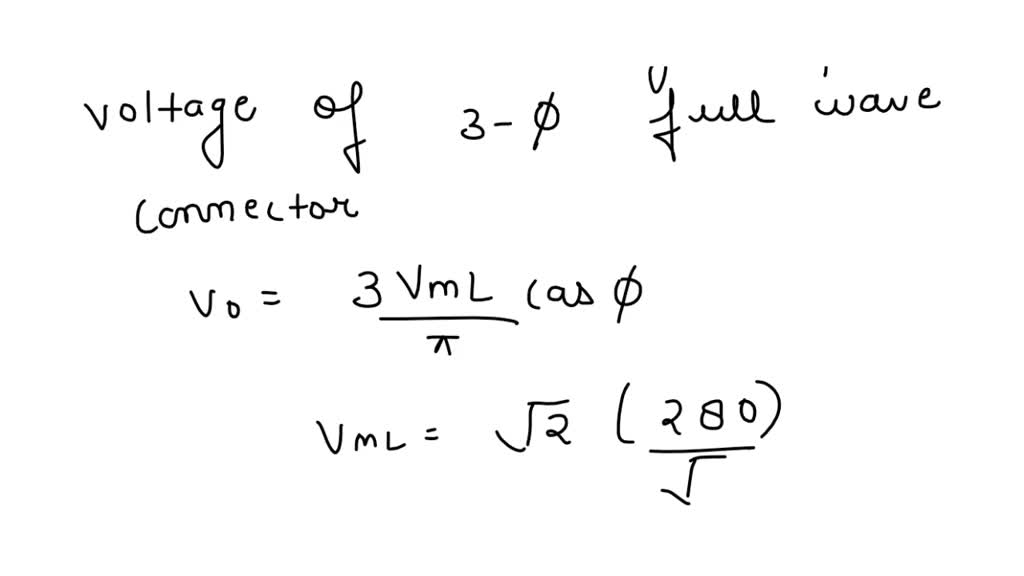 voltage of 3-ϕ full wave
connector
V₀ = 3 VmL / π cas ϕ
VmL = √2 ( 280 / √ )